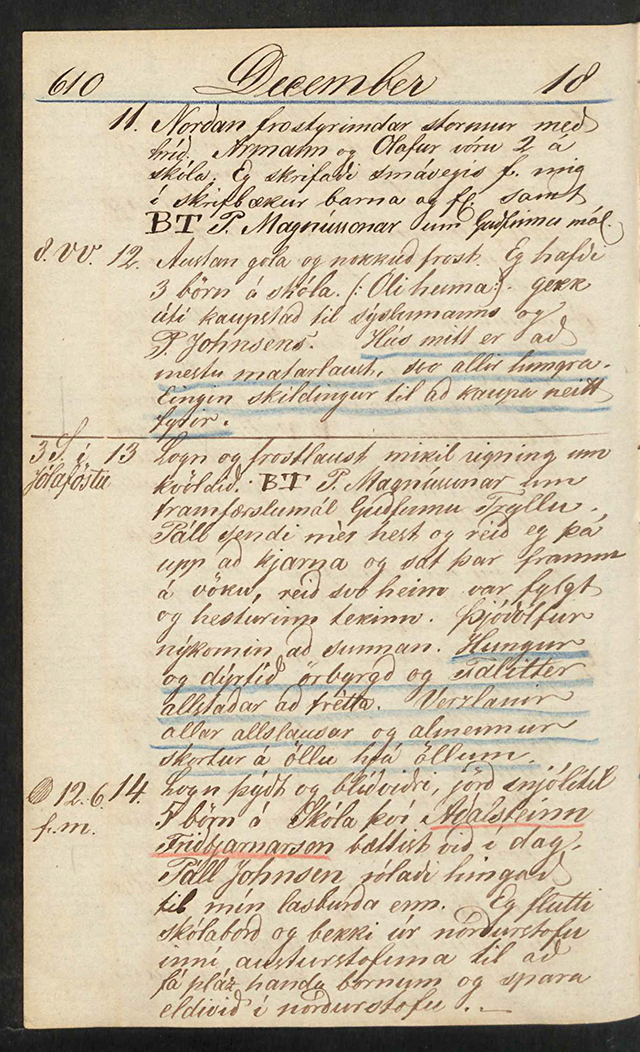 610 December 18
11. Norðan frostgrimdar stormur með
hríð. Ármann og Ólafur vóru 2 á
skóla. Eg skrifaði smávegis f. mig
í skrifbækur barna og fl. samt
BT P. Magnússonar um Guðfinnu mál.
8. VV. 12. Austan gola og nokkuð frost. Eg hafði
3 börn á skóla. (: Óli heima :). gekk
úti kaupstað til sýslumanns og
P. Johnsens. Hús mitt er að
mestu matarlaust, svo allir hungra.
Eingin skildingur til að kaupa neitt
fyrir.
3 S. í 13 Logn og frostlaust mikil rigning um
jólaföstu kvöldið. BT P. Magnússonar um
framfærslumál Guðfinnu Tryllu.
Páll sendi mèr hest og reið eg þá
upp að kjarna og sat þar framm
á vöku, reið svo heim var fylgt
og hesturinn tekinn. Þjóðólfur
nýkomin að sunnan. Hungur
og dýrtíð örbyrgð og
allstaðar að frètta. Verzlanir
allar allslausar og almennur
skortur á öllu hjá öllum.
12.6. 14. Logn þýdt og blíðviðri, jörð snjólítil
f.m. 5 börn á Skóla því Aðalsteinn
Friðbjarnarson bættist við í dag.
Páll Johnsen rólaði hingað
til mín lasburða enn. Eg flutti
skólaborð og bekki úr norðurstofu
inní austurstofuna til að
fá pláz handa börnum og spara
eldivið í norðurstofu. . —